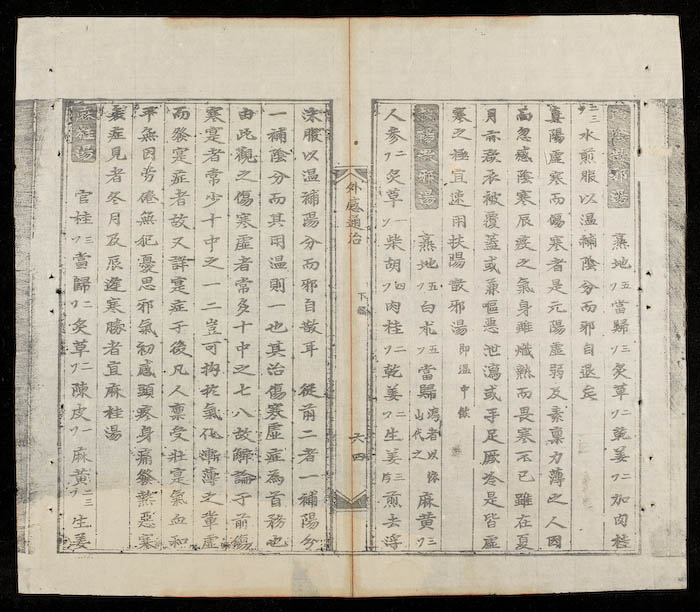 陰散邪湯 熟地ソ五當歸ソ三炙草ソ二乾姜ソ二加肉桂
ソ三水煎服以温補陰分而邪自退矣
真陽虛寒而傷寒者是元陽虛弱及素稟力薄之人因
而忽感陰寒辰疫之氣身雖熾熱而畏寒不已雖在夏
月亦欲衣被覆蓋或兼嘔惡泄瀉或手足厥冷是皆虛
寒之極宜速用扶陽散邪湯 即温中飲
扶陽散邪湯 熟地ソ五白朮ソ五當歸瀉者以淮山代之麻黄ソ三
人参ソ二炙草ソ一柴胡ソ四肉桂ソ二乾姜ソ二生姜三片煎去浮
外感通治 下編 六四
沫服以温補陽分而邪自散耳 從前二者一補陽分
一補陰分而其用温則一也其治傷寒虛症為首務也
由此觀之傷寒虛者常多十中之七八故觧論于前傷
寒寔者常少十中之一二豈可拘於氣化漸薄之輩虛
而發寔症者故又詳寔症于後凡人稟受壯寔氣血和
平無因劳倦無犯憂思邪氣初感頭疼身痛發熱惡寒
表症見者冬月及辰違寒勝者宜麻桂湯
麻桂湯 官桂ソ三當歸ソ二炙草ソ二陳皮ソ一麻黄ソ二三生姜